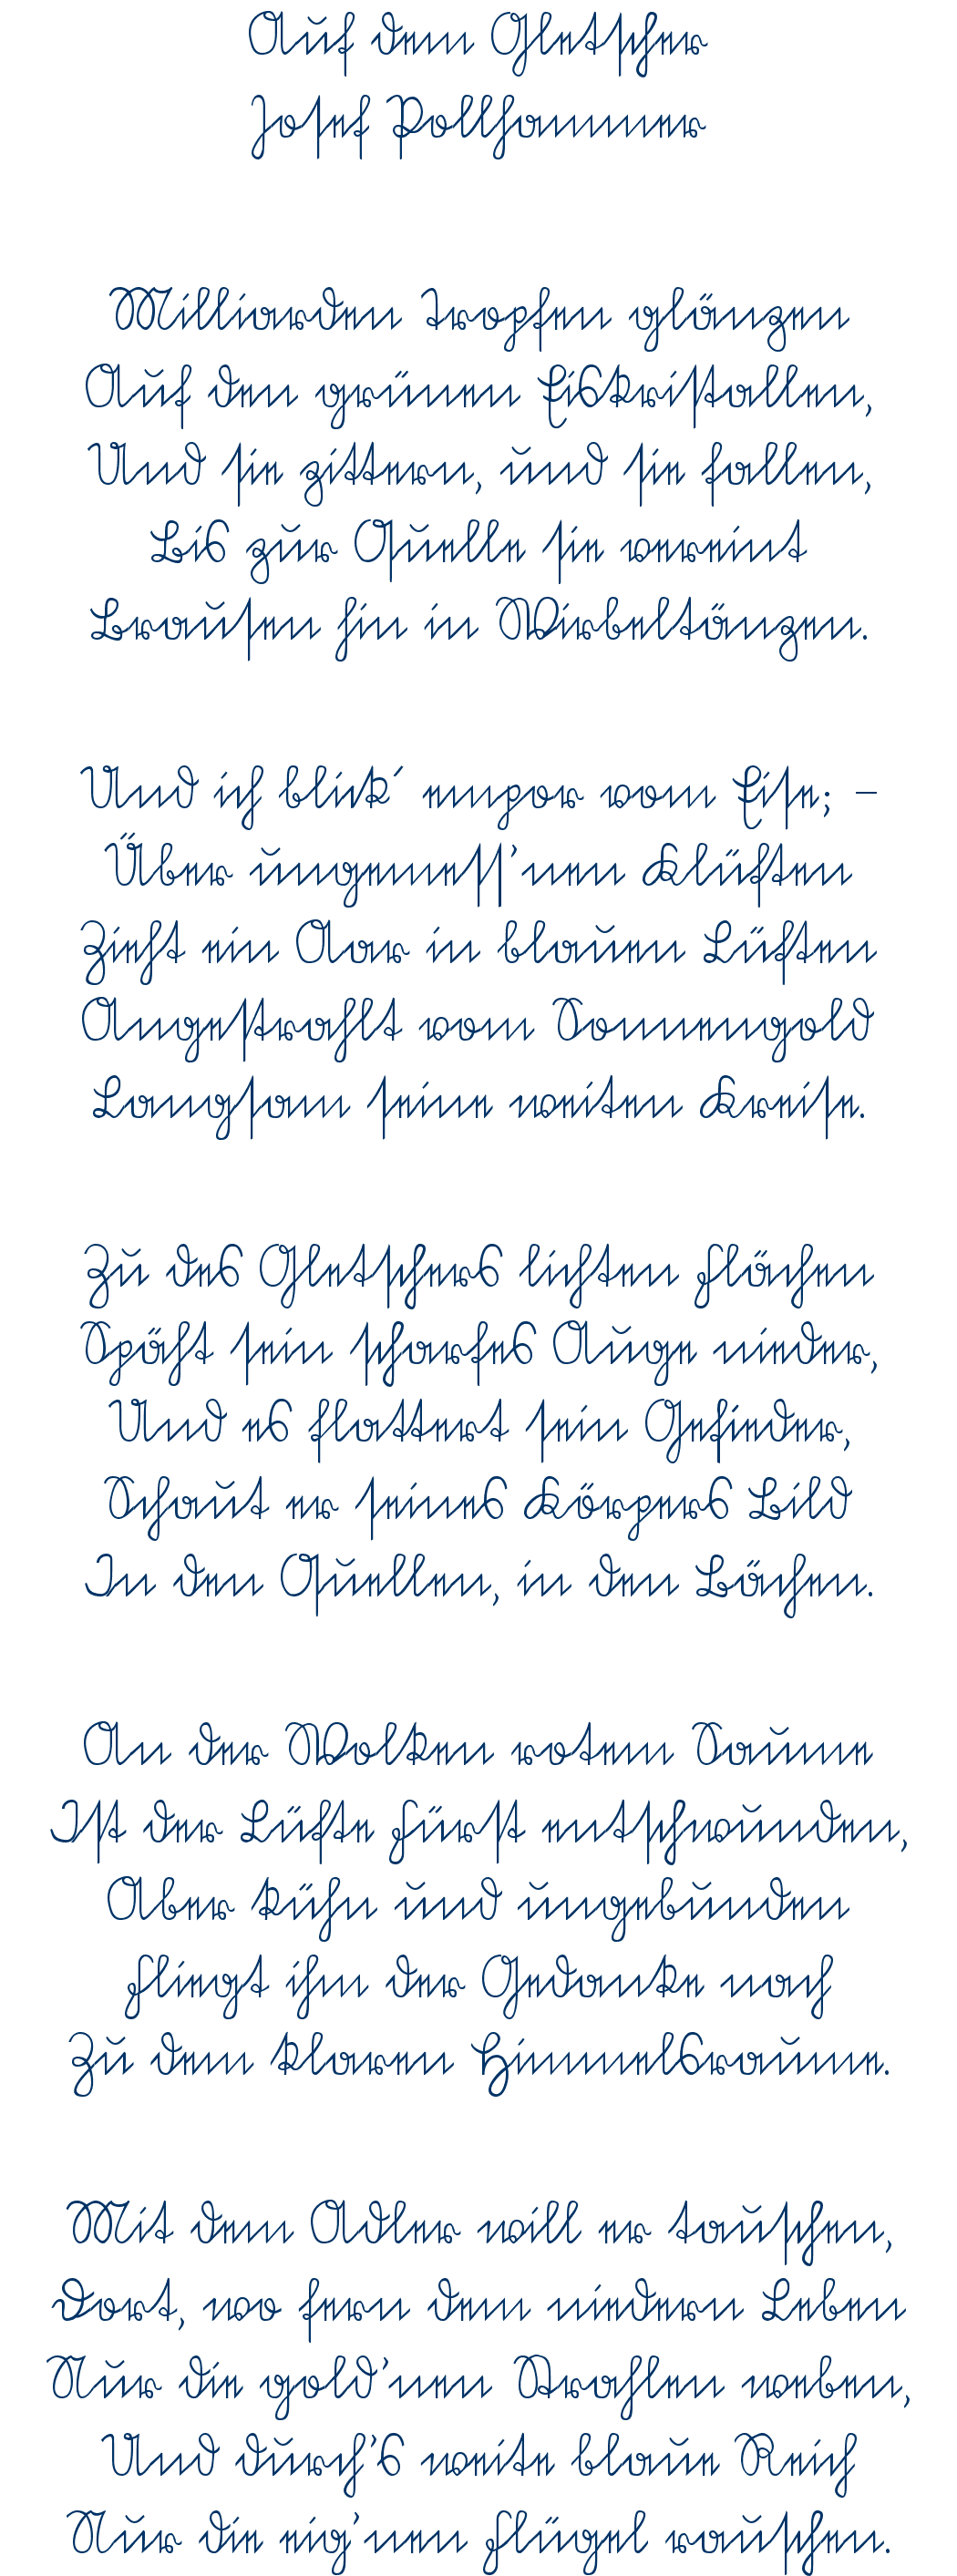 Auf dem Gletscher
Josef Pollhammer
Milliarden Tropfen glänzen
Auf den grünen Eiskristallen,
Und sie zittern, und sie fallen,
Bis zur Quelle sie vereint
Brausen hin in Wirbeltänzen.
Und ich blick´ empor vom Eise; –
Über ungemess'nen Klüften
Zieht ein Aar in blauen Lüften
Angestrahlt vom Sonnengold
Langsam seine weiten Kreise.
Zu des Gletschers lichten Flächen
Späht sein scharfes Auge nieder,
Und es flattert sein Gefieder,
Schaut er seines Körpers Bild
In den Quellen, in den Bächen.
An der Wolken rotem Saume
Ist der Lüfte Fürst entschwunden,
Aber kühn und ungebunden
Fliegt ihm der Gedanke nach
Zu dem klaren Himmelsraume.
Mit dem Adler will er tauschen,
Dort, wo fern dem niedern Leben
Nur die gold'nen Strahlen weben,
Und durch's weite blaue Reich
Nur die eig'nen Flügel rauschen.